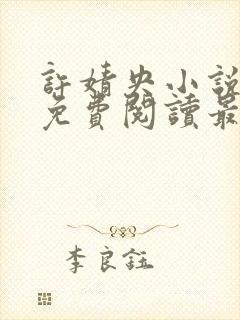 許婧央小說
免費閱讀最
李良鈺